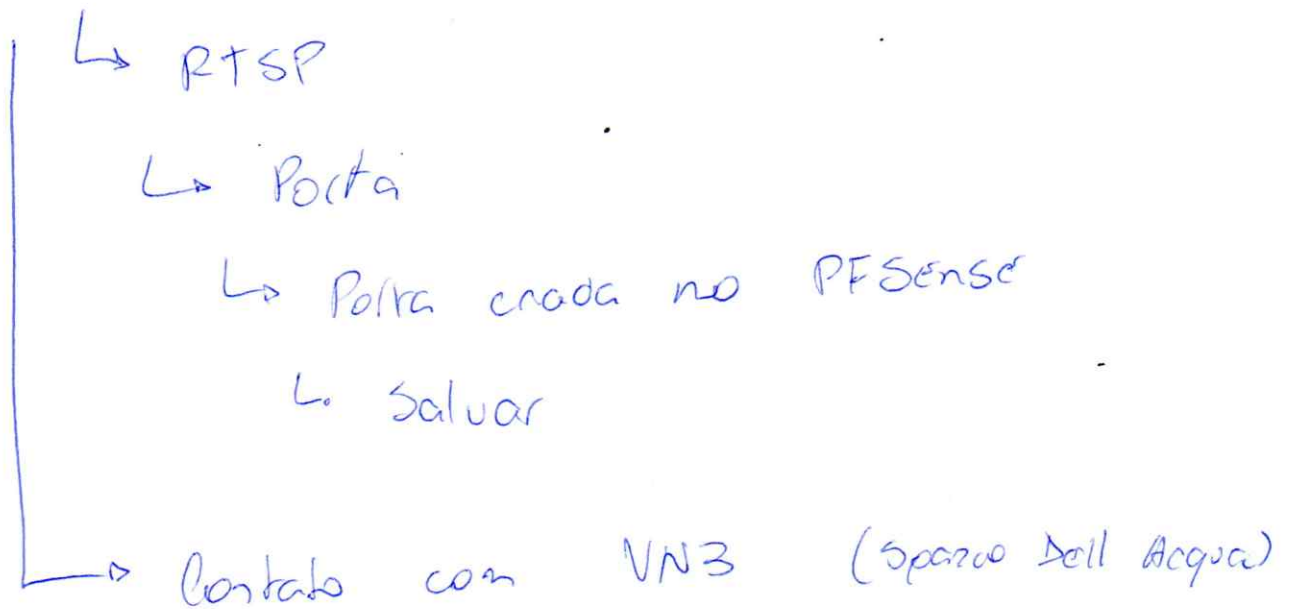 RTSP
Porta
Porta criada no PFSense
Salvar
Contato com VN3 (Spazio Dell Acqua)